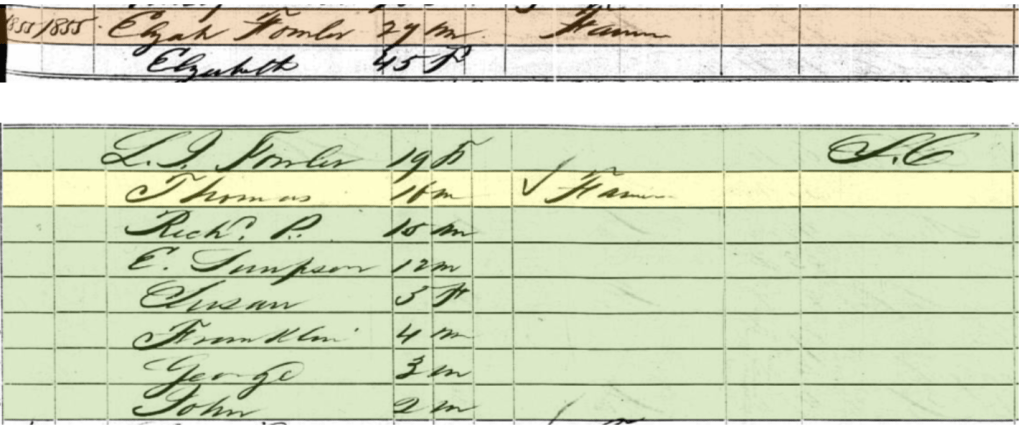 1855 1855 Elijah Fowler 29 m Farmer
Elizabeth 45 F
L. J. Fowler 19 F S.C
Thomas 16 m Farmer
Richd. P. 15 m
E. Simpson 12 m
Susan 5 F
Franklin 4 m
George 3 m
John 2 m